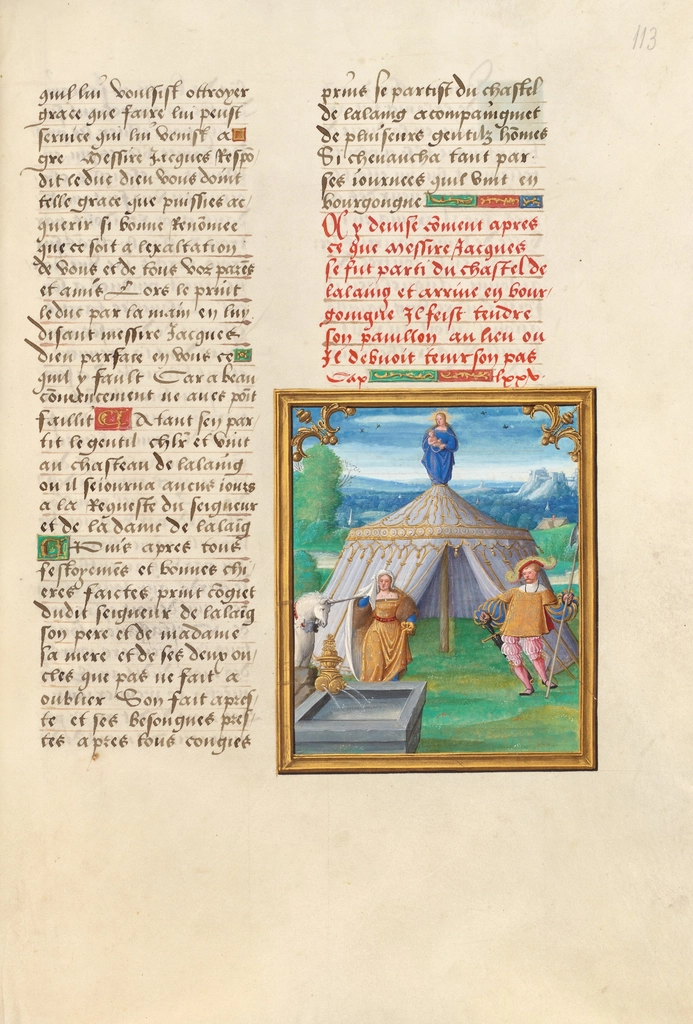 113
quil lui voulsist ottroyer
grace que faire lui peust
service qui lui venist a
gre Messire Jacques Respo
dit le duc dieu vous doint
telle grace que puissies ac
querir si bonne Renomee
que ce soit a lexaltation
de vous et de tous voz pares
et amis Lors le print
le duc par la main en luy
disant messire Jacques
dieu parface en vous ce
quil y fault Car a beau
comencement ne aves point
failli A tant sen par
tit le gentil chlr et vint
au chasteau de lalaing
ou il seiourna aucus iours
a la Requeste du seigneur
et de la dame de lalaig
Puis apres tous
festoyemes et bonnes chi
eres faictes print cogiet
dudit seigneur de lalaig
son pere et de madame
sa mere et de ses deux on
cles que pas ne fait a
oublier Son fait apres
te et ses besongnes pres
tes apres tous congies
prins se partist du chastel
de lalaing acompaignet
de pluiseurs gentilz homes
Si chevaucha tant par
ses iournees quil vint en
bourgongne
Cy devise coment apres
ce que Messire Jacques
se fut parti du chastel de
lalaing et arrive en bour
goingne Il feist tendre
son pavillon au lieu ou
Il debvoit tenir son pas
Cap lxxv